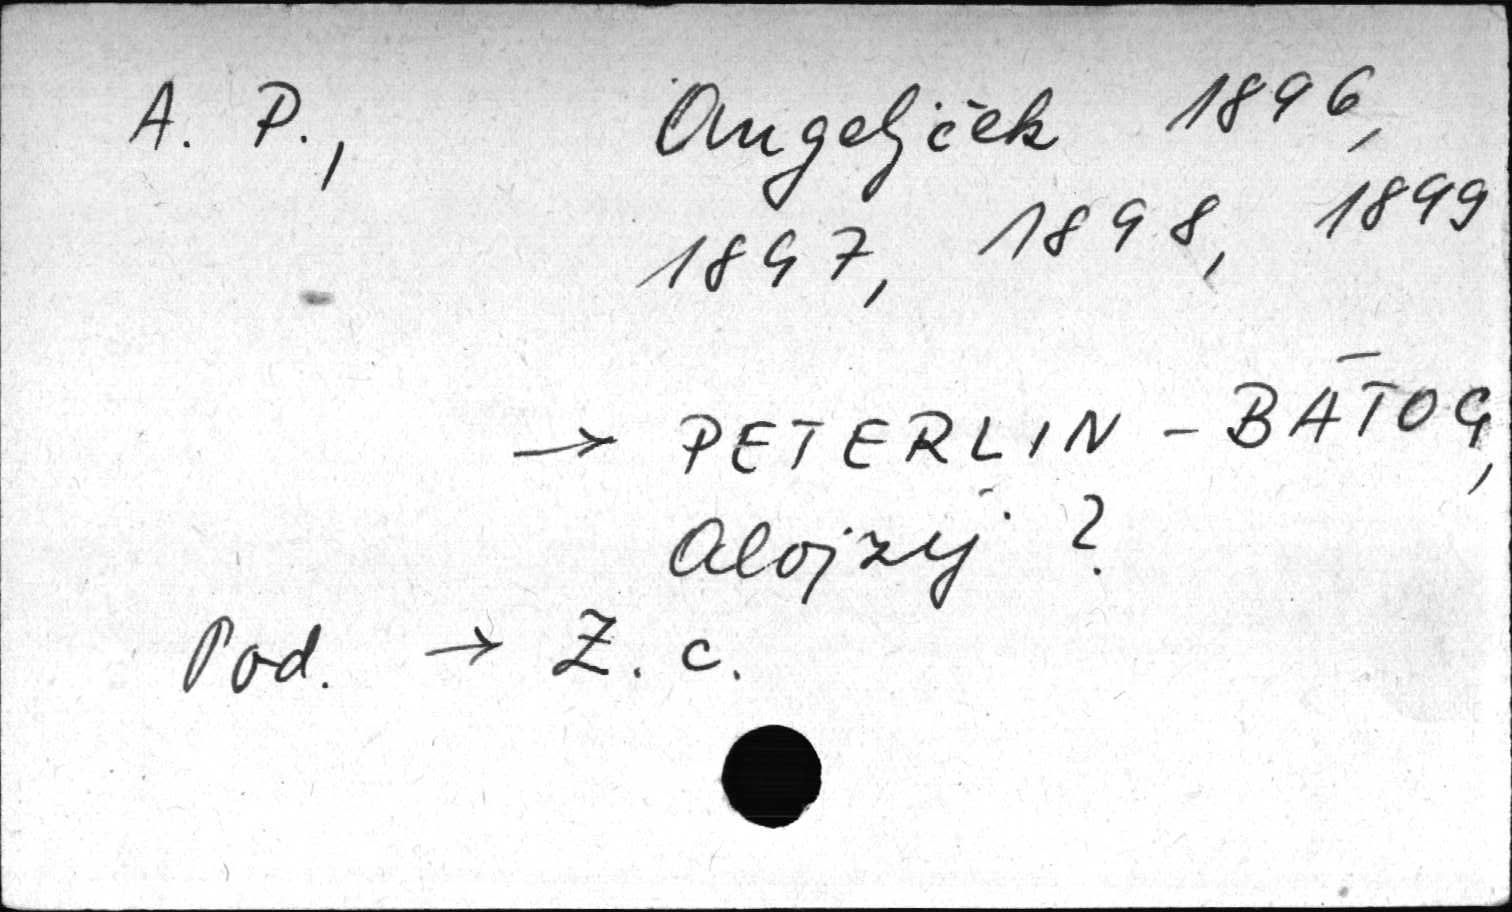 A. P., Angeljček 1896,
1897, 1898, 1899
→ PETERLIN - BATOG,
Alojzij ?
Pod. → Ž. c.